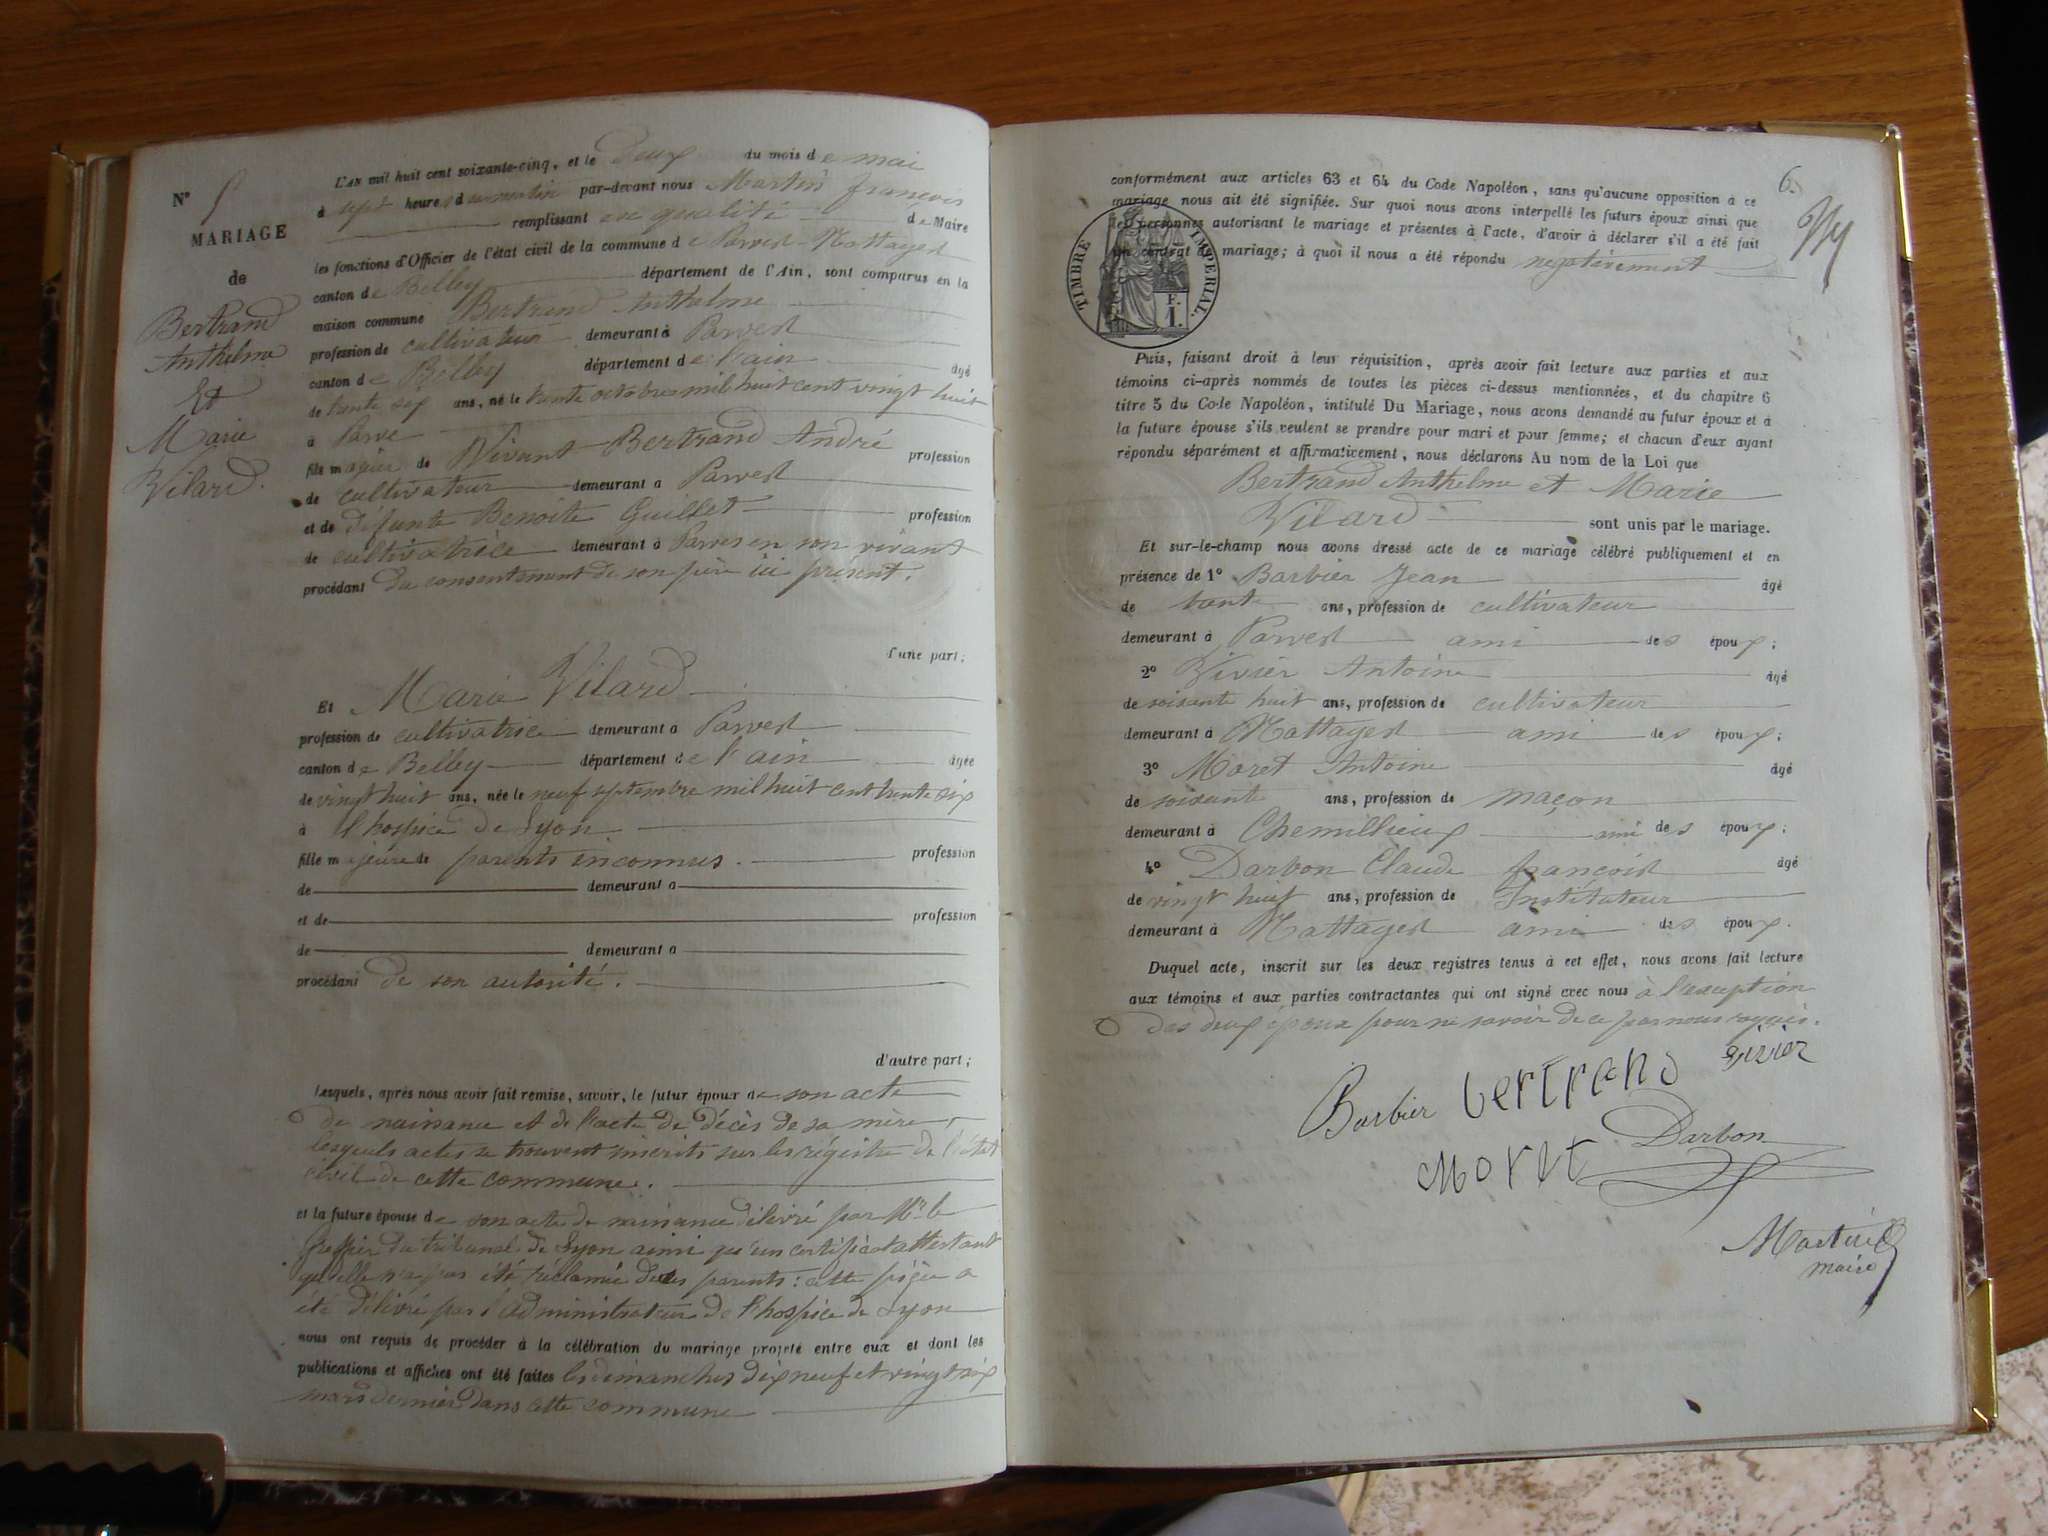 N°
MARIAGE
de
Bertrand
Anthelme
Et
Marie
Vilard.
L'AN mil huit cent soixante-cinq, et le deux du mois de mai
à sept heures du matin par-devant nous Martin françois
remplissant en qualité de Maire
les fonctions d'Officier de l'état civil de la commune de Parves-Nattages
canton de Belley département de l'Ain, sont comparus en la
maison commune Bertrand Anthelme
profession de cultivateur demeurant à Parves
canton de Belley département de l'ain âgé
de trente six ans, né le trente octobre mil huit cent vingt huit
à Parve
fils majeur de Vivant Bertrand André profession
de cultivateur demeurant à Parves
et de défunte Benoite Guillet profession
de cultivatrice demeurant à Parves en son vivant
procédant du consentement de son père ici présent.
d'une part;
Et Marie Vilard
profession de cultivatrice demeurant à Parves
canton de Belley département de l'ain âgée
de vingt huit ans, née le neuf septembre mil huit cent trente six
à l'hospice de Lyon
fille majeure de parents inconnus. profession
de demeurant à
et de profession
de demeurant à
procédant de son autorité.
d'autre part;
Lesquels, après nous avoir fait remise, savoir, le futur époux de son acte
de naissance et de l'acte de décès de sa mère,
lesquels actes se trouvent inscrits sur les régistre de l'état
civil de cette commune.
et la future épouse de son acte de naissance délivré par Mr le
greffier du tribunal de Lyon ainsi qu'un certificat attestant
qu'elle n'a pas été réclamée de ses parents: cette pièce a
été délivré par l'administrateur de l'hospice de Lyon
nous ont requis de procéder à la célébration du mariage projeté entre eux et dont les
publications et affiches ont été faites les dimanches dix neuf et vingt six
mars dernier dans cette commune
6.
conformément aux articles 63 et 64 du Code Napoléon, sans qu'aucune opposition à ce
mariage nous ait été signifiée. Sur quoi nous avons interpellé les futurs époux ainsi que
les personnes autorisant le mariage et présentes à l'acte, d'avoir à déclarer s'il a été fait
un contrat de mariage; à quoi il nous a été répondu negativement
TIMBRE IMPERIAL.
F.
1.
Puis, faisant droit à leur réquisition, après avoir fait lecture aux parties et aux
témoins ci-après nommés de toutes les pièces ci-dessus mentionnées, et du chapitre 6
titre 5 du Code Napoléon, intitulé Du Mariage, nous avons demandé au futur époux et à
la future épouse s'ils veulent se prendre pour mari et pour femme; et chacun d'eux ayant
répondu séparément et affirmativement, nous déclarons Au nom de la Loi que
Bertrand Anthelme et Marie
Vilard sont unis par le mariage.
Et sur-le-champ nous avons dressé acte de ce mariage célébré publiquement et en
présence de 1° Barbier Jean âgé
de trente ans, profession de cultivateur
demeurant à Parves ami des époux;
2° Vivier Antoine âgé
de soisante huit ans, profession de cultivateur
demeurant à Nattages ami des époux;
3° Moret Antoine âgé
de soisante ans, profession de maçon
demeurant à Chemillieux ami des époux;
4° Darbon Claude françois âgé
de vingt huit ans, profession de Instituteur
demeurant à Nattages ami des époux.
Duquel acte, inscrit sur les deux registres tenus à cet effet, nous avons fait lecture
aux témoins et aux parties contractantes qui ont signé avec nous à l'exception
des deux époux pour ne savoir de ce par nous requis.
Barbier bertrand vivier
Moret Darbon
Martin
maire